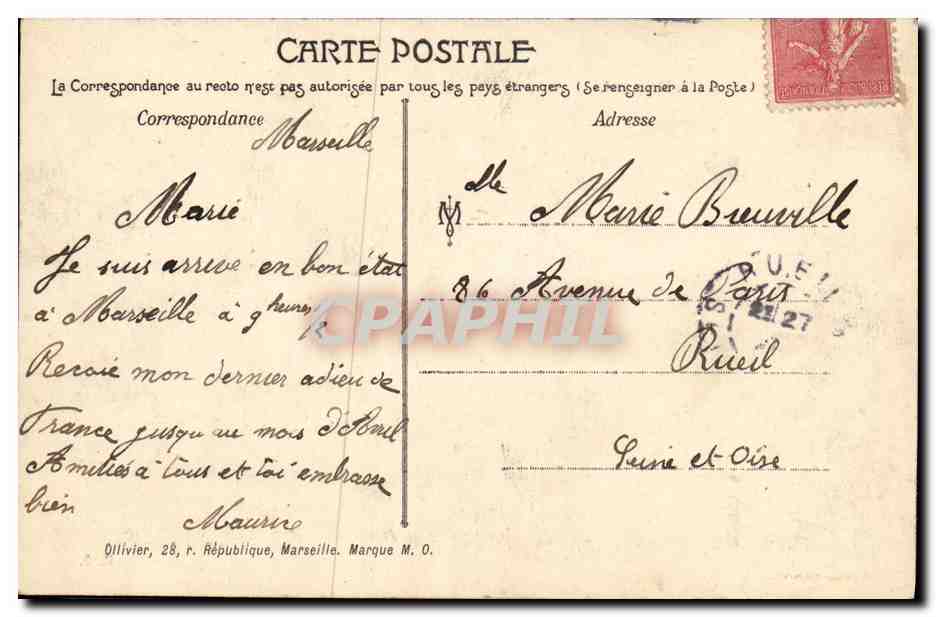 CARTE POSTALE
La Correspondance au recto n'est pas autorisée par tous les pays étrangers (Se renseigner à la Poste)
Correspondance
Marseille
Marie
Je suis arrive en bon état
à Marseille à 9 heures
Recois mon dernier adieu de
France jusqu au mois d'Avril
Amities à tous et toi embrasse
bien
Maurice
Ollivier, 28, r. République, Marseille. Marque M. O.
Adresse
Mlle Marie Breuville
86 Avenue de Paris
Rueil
Seine et Oise
RUEIL
27
CPAPHIL